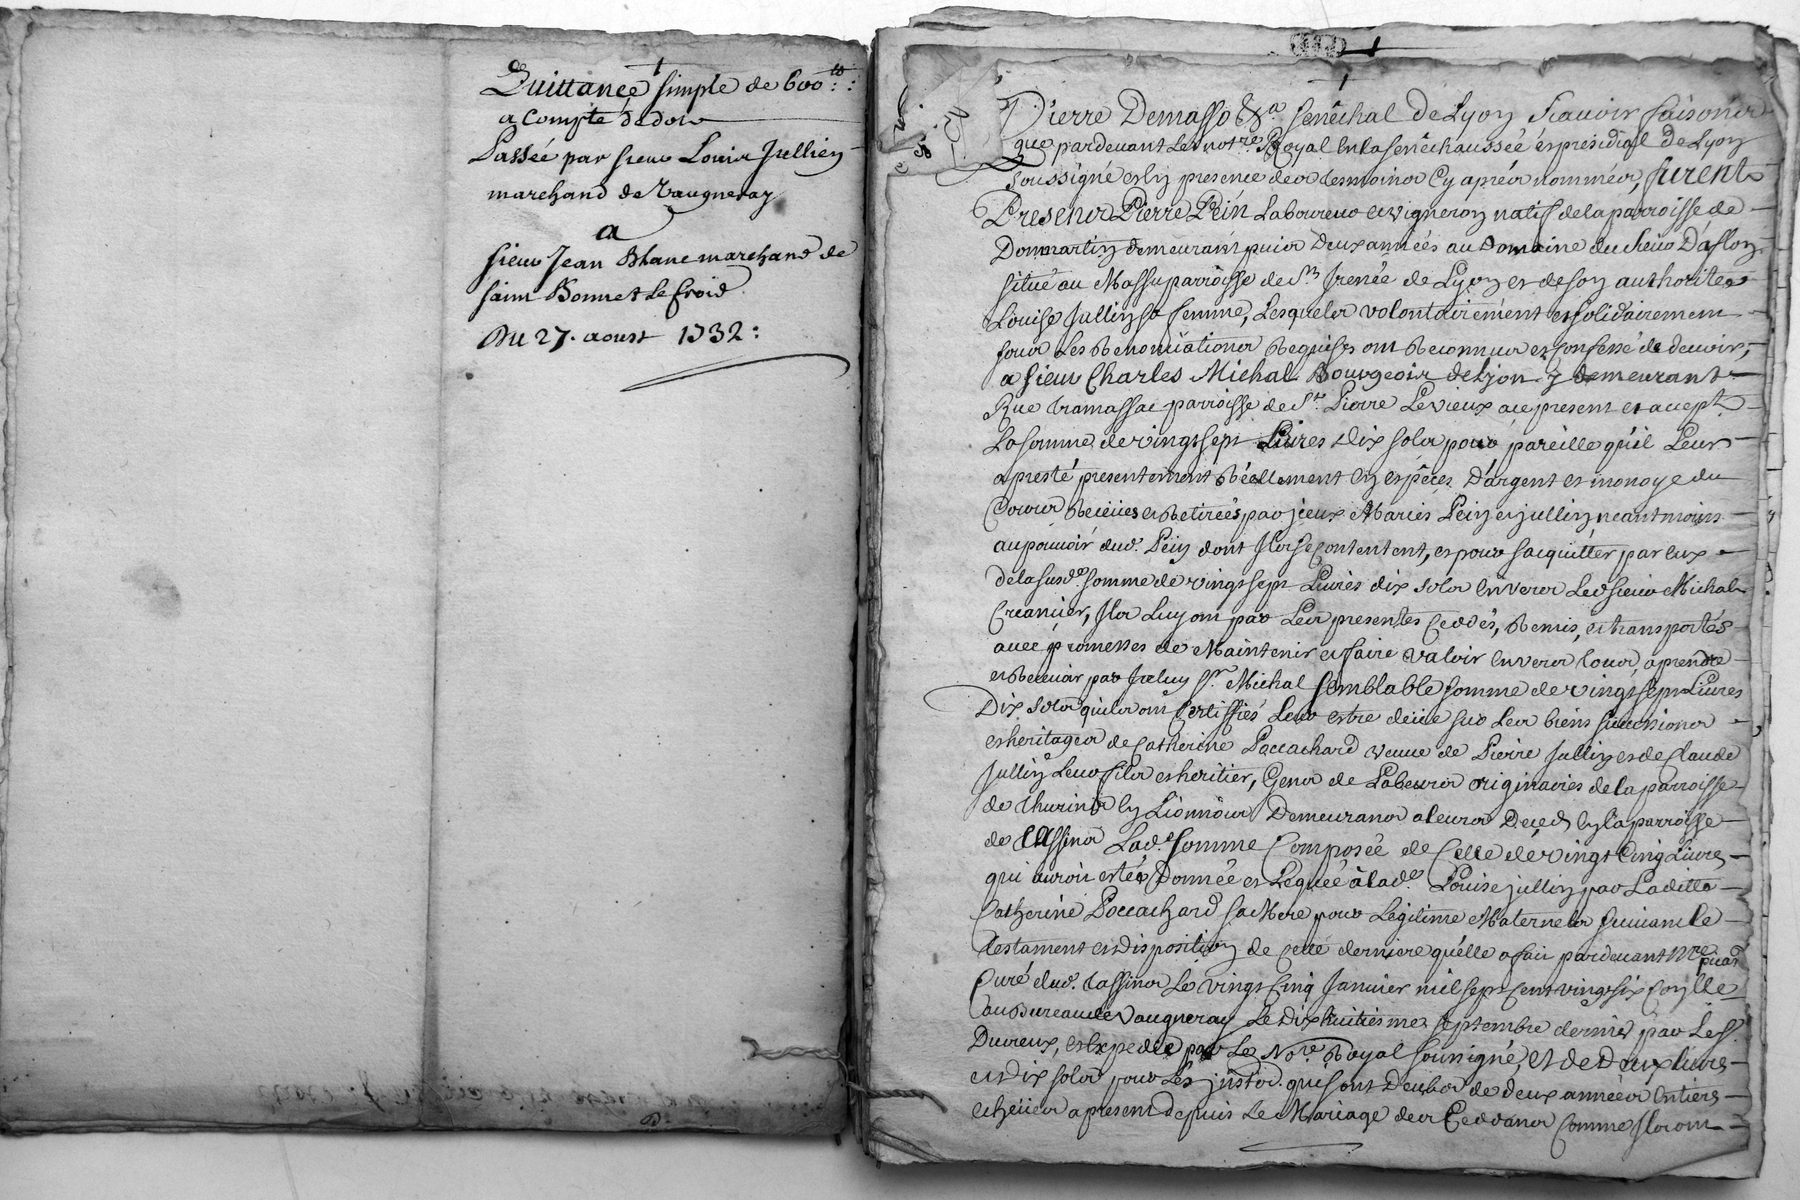 Quittance simple de 600 ₶:
a compte de dot
Passée par sieur Louis Jullien
marchand de Vaugneray
a
sieur Jean Blanc marchand de
saint Bonnet Le froid
Du 27. aoust 1732:
Pierre Demasso &a. senéchal de Lyon scavoir faisons
que pardevant Le notre. Royal en la senéchaussée et presidial de Lyon
soussigné et en presence des tesmoins cy aprés nommés, furent
Presens Pierre Péin Laboureur et vigneron natif de la parroisse de
Dommartin demeurant puis deux années au Domaine du sieur
situé au Massu parroisse de St. Irenée de Lyon et de son authorité
Louise Jullin sa femme, Lesquels volontairement et solidairement
sous Les Renonciations Requises ont Reconnu et confessé de devoir,
a sieur Charles Michal Bourgeois de Lyon y demeurant
Rue tramassac parroisse de St. Pierre Le vieux ace present et accept.
La somme de vingt sept Livres dix sols pour pareille qu'il Leur
a presté presentement Réellement en espéces D'argent et monoye du
Cours Receües et Retirées par jceux Mariés Péin et jullin neantmoins
au pouvoir dud. Péin dont Ils se contentent, et pour s'acquitter par eux
de la susde. somme de vingt sept Livres dix sols envers Led sieur Michal
Creancier, Ils Luy ont par Les presentes Ceddés, Remis, et transportés
avec promesses de Maintenir et faire valoir envers tous, a prendre
et Recevoir par Iceluy Sr. Michal semblable somme de vingt sept Livres
Dix sols qu'ils ont Certiffiés Leur estre deüe sur Les biens successions
et heritages de Catherine Poccachard veuve de Pierre Jullin et de Claude
Jullin Leur fils et heritier, Gens de Labeurs originaires de la parroisse
de thurins en Lionnois Demeurans a leurs Decéds en la parroisse
de tassins Lade. somme Composée de Celle de vingt Cinq Livres
qui auroit estée Donnée et Leguée à lade. Louise jullin par Laditte
Catherine Poccachard sa Mere pour Legitime Maternelle suivant le
testament et disposition de cette derniere qu'elle a fait pardevant Mre
Curé dud. tassins Le vingt Cinq Janvier mil sept cent vingt six Con̄lle
au Bureau de Vaugneray Le Dix huitiesme septembre dernier par Le S.
Duvreux, et Expedié par Le Nore. Royal soussigné, et de Deux livres
et dix sols pour Les justes qui sont deubs de deux années entiers
echeües a present depuis Le Mariage des Ceddans Comme Ils ont